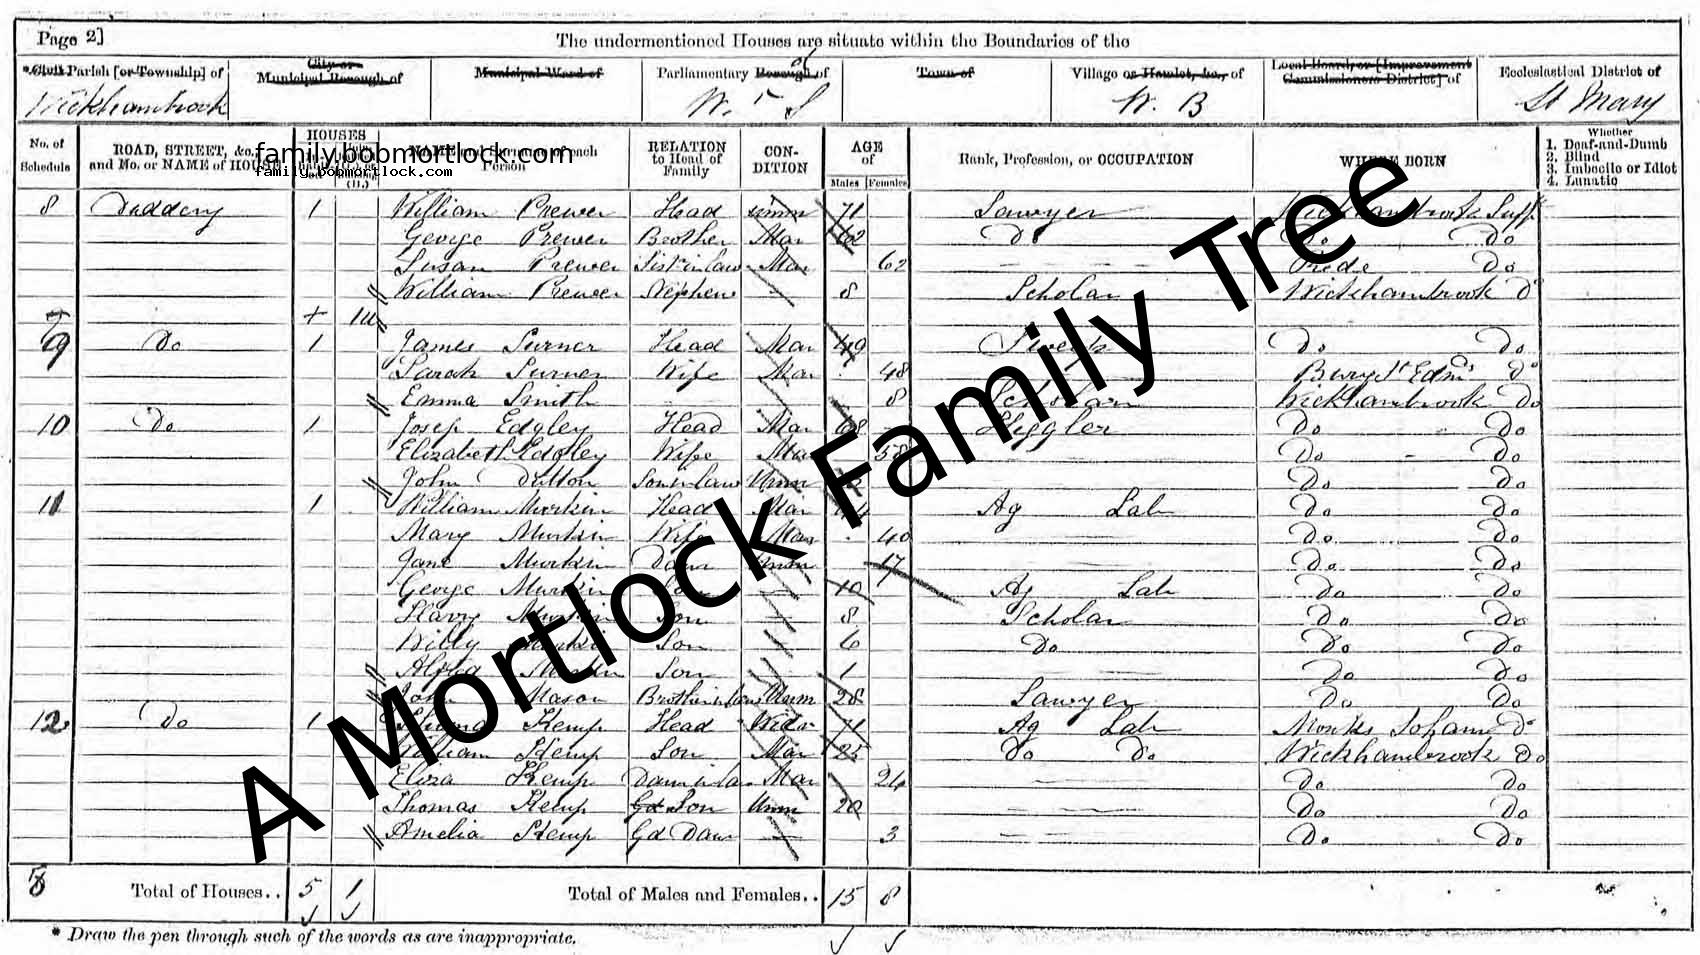 Page 2]
The undermentioned Houses are situate within the Boundaries of the
*Civil Parish [or Township] of City or Municipal Borough of Municipal Ward of Parliamentary Borough of Town of Village or Hamlet, &c., of Local Board, or [Improvement Commissioners District] of Ecclesiastical District of
Wickhambrook W. S W. B St Mary
No. of Schedule ROAD, STREET, &c., and No. or NAME of HOUSE HOUSES Name and Surname of each Person RELATION to Head of Family CONDITION AGE of Males Females Rank, Profession, or OCCUPATION WHERE BORN Whether 1. Deaf-and-Dumb 2. Blind 3. Imbecile or Idiot 4. Lunatic
familybobmortlock.com
family.bobmortlock.com
8 Duddery 1 William Prewer Head unm 71 Sawyer Wickhambrook Suff
George Prewer Brother Mar 62 Do Do Do
Susan Prewer Sist in law Mar 62 Do
William Prewer Nephew 8 Scholar Wickhambrook Do
+ 1u
9 Do 1 James Turner Head Mar 49 Do Do
Sarah Turner Wife Mar 48 Bury St Edms Do
Emma Smith 8 Scholar Wickhambrook Do
10 Do 1 Josep Edgley Head Mar 68 Higgler Do Do
Elizabeth Edgley Wife Mar 58 Do Do
John Dutton Son in law Unm Do Do
11 1 William Murkin Head Mar Ag Lab Do Do
Mary Murkin Wife Mar 40 Do Do
Jane Murkin Daur Unm 17 Do Do
George Murkin Son 10 Ag Lab Do Do
Harry Murkin Son 8 Scholar Do Do
Willy Murkin Son 6 Do Do Do
Alfred Murkin Son 1 Do Do
John Mason Brother in law Unm 28 Sawyer Do Do
12 Do 1 Kemp Head Widr 71 Ag Lab Monks Soham Do
William Kemp Son Mar 25 Do Do Wickhambrook Do
Eliza Kemp Daur in la Mar 24 Do Do
Thomas Kemp Gd Son Unm 20 Do Do
Amelia Kemp Gd Daur 3 Do Do
Total of Houses.. 5 1 Total of Males and Females.. 15 8
* Draw the pen through such of the words as are inappropriate.
A Mortlock Family Tree